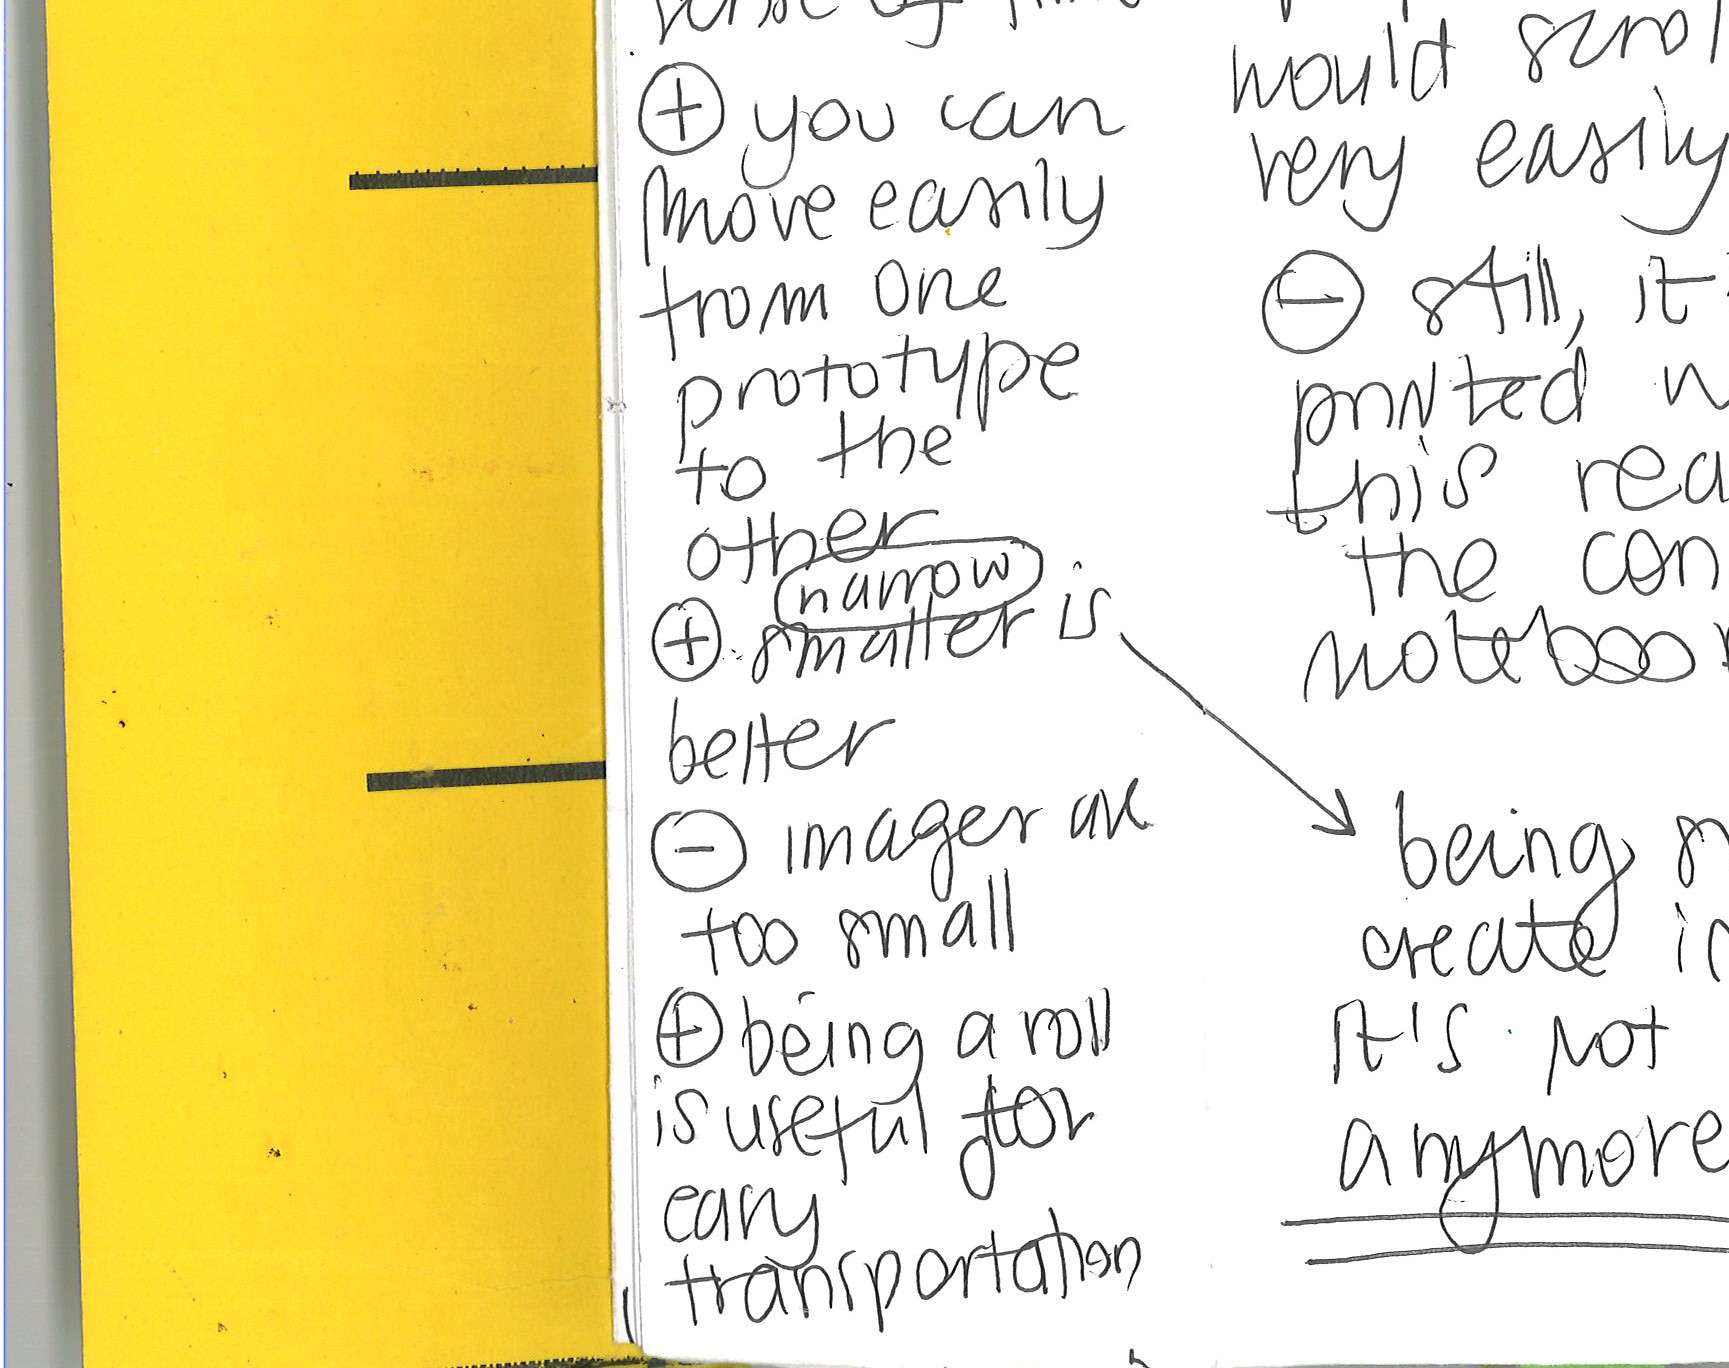 ⊕ you can
move easily
from one
prototype
to the
other
narrow
⊕ smaller is
better
⊖ images are
too small
⊕ being a roll
is useful for
easy
transportation
would
very easily
⊖ still, it
printed
this
the
being
create
it's not
anymore